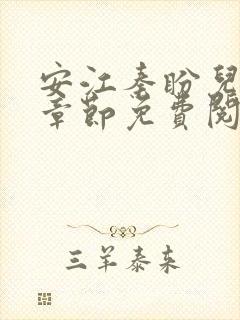 安江秦盼兒
章節免費閱
三羊泰来